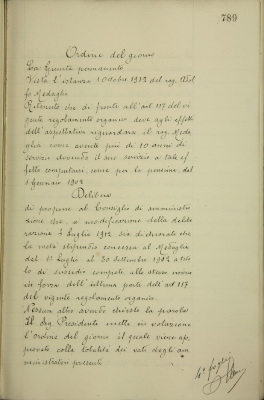 789
Ordine del giorno
La Giunta permanente
Vista l'istanza 1 Ottobre 1912 del rag. Adol
fo Medaglia
Ritenuto che di fronte all'art 117 del vi
gente regolamento organico deve agli effetti
dell'aspettativa riguardarsi il rag. Meda
glia come avente più di 10 anni di
servizio dovendo il suo servizio a tale ef
fetto computarsi, come per la pensione, dal
1 Gennaio 1902
Delibera
di proporre al Consiglio di amministra
zione che, a modificazione della delibe
razione 4 Luglio 1912 sia dichiarato che
la metà stipendio concessa al Medaglia
dal 1° Luglio al 30 Settembre 1912 a tito
lo di sussidio compete allo stesso invece
ai sensi dell'ultima parte dell'art 117
del vigente regolamento organico.
Nessun altro avendo chiesto la parola
Il Sig. Presidente mette in votazione
l'ordine del giorno il quale viene ap
provato colla totalità dei voti degli am
ministratori presenti